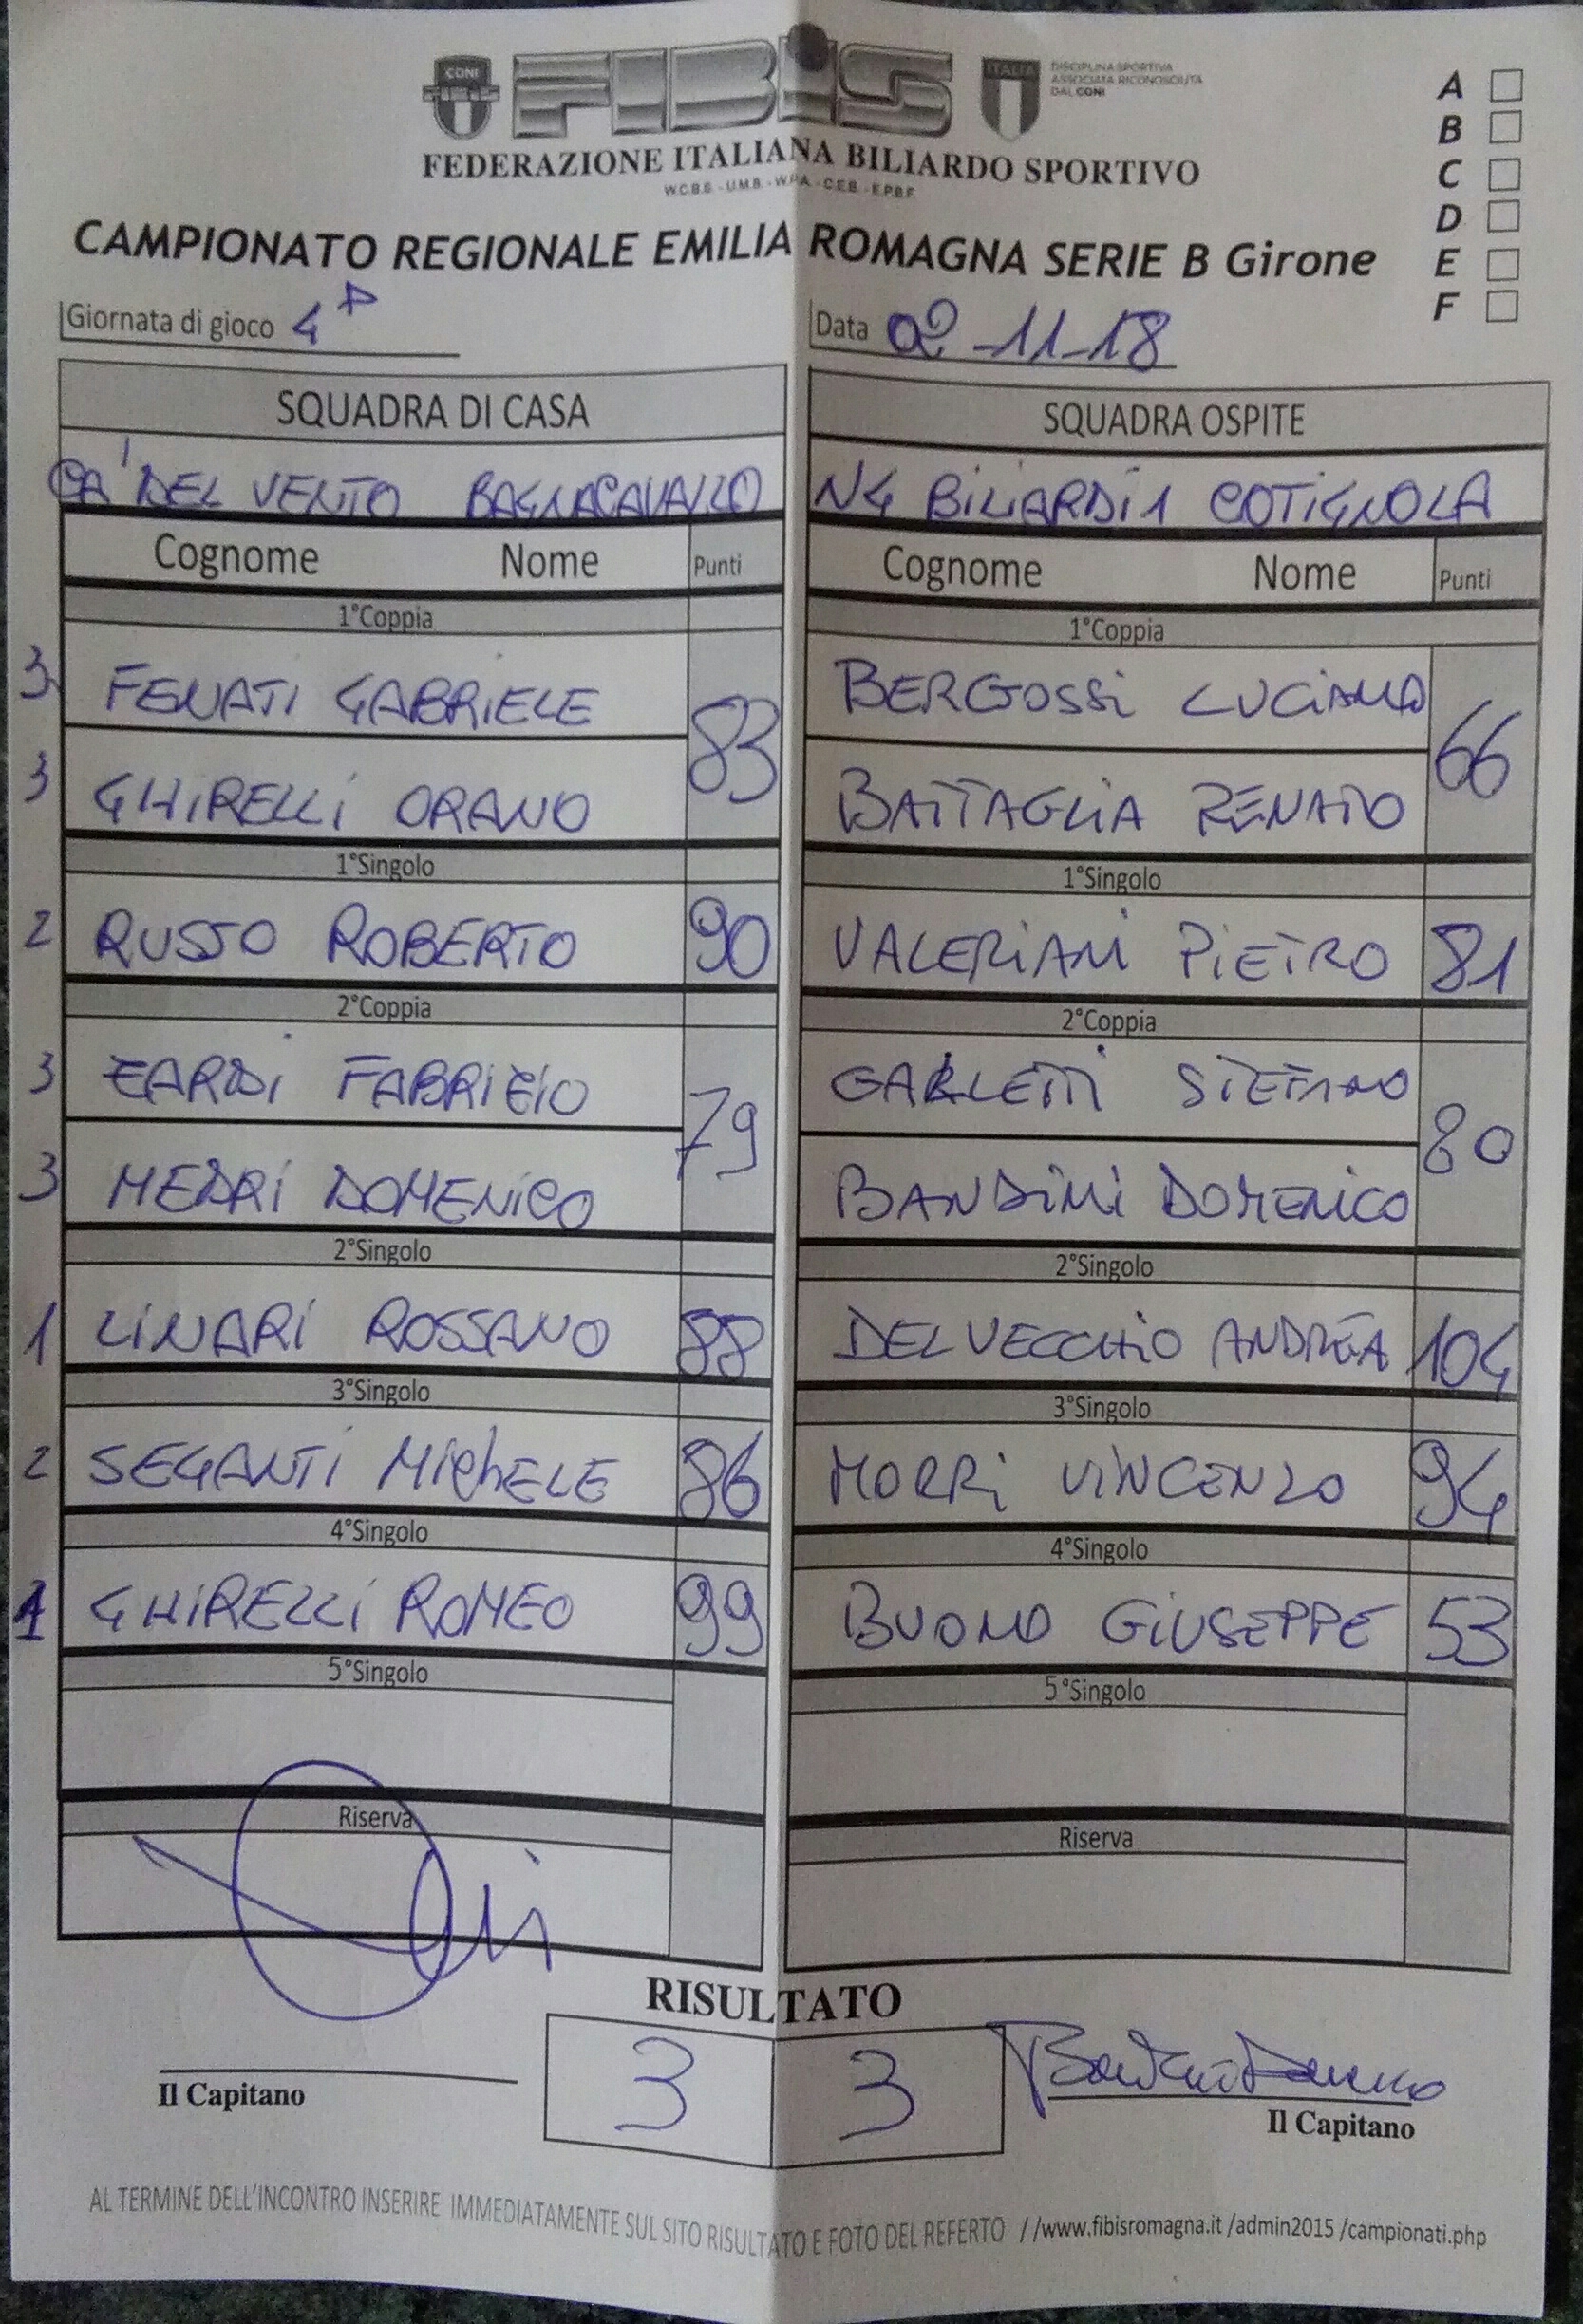 CONI
FIBIS
ITALIA
DISCIPLINA SPORTIVA
ASSOCIATA RICONOSCIUTA
DAL CONI
FEDERAZIONE ITALIANA BILIARDO SPORTIVO
W.C.B.S. - U.M.B. - W.P.A. - C.E.B. - E.P.B.F.
A
B
C
D
E
F
CAMPIONATO REGIONALE EMILIA ROMAGNA SERIE B Girone
Giornata di gioco 4ª
Data 02-11-18
SQUADRA DI CASA
CA' DEL VENTO BAGNACAVALLO
Cognome Nome Punti
1°Coppia
3 FENATI GABRIELE
83
3 GHIRELLI ORANO
1°Singolo
2 RUSSO ROBERTO 90
2°Coppia
3 ZARDI FABRIZIO
79
3 MEDRI DOMENICO
2°Singolo
1 LINARI ROSSANO 88
3°Singolo
2 SEGANTI MIChELE 86
4°Singolo
1 GHIRELLI ROMEO 99
5°Singolo
Riserva
SQUADRA OSPITE
N4 BILIARDI 1 COTIGNOLA
Cognome Nome Punti
1°Coppia
BERGOSSI LUCIANO
66
BATTAGLIA RENATO
1°Singolo
VALERIANI PIETRO 81
2°Coppia
STEFANO
80
BANDINI DOMENICO
2°Singolo
DEL VECCHIO ANDREA 104
3°Singolo
MORRI VINCENZO 94
4°Singolo
BUONO GIUSEPPE 53
5°Singolo
Riserva
RISULTATO
3 3
Il Capitano
Il Capitano
AL TERMINE DELL'INCONTRO INSERIRE IMMEDIATAMENTE SUL SITO RISULTATO E FOTO DEL REFERTO //www.fibisromagna.it /admin2015 /campionati.php